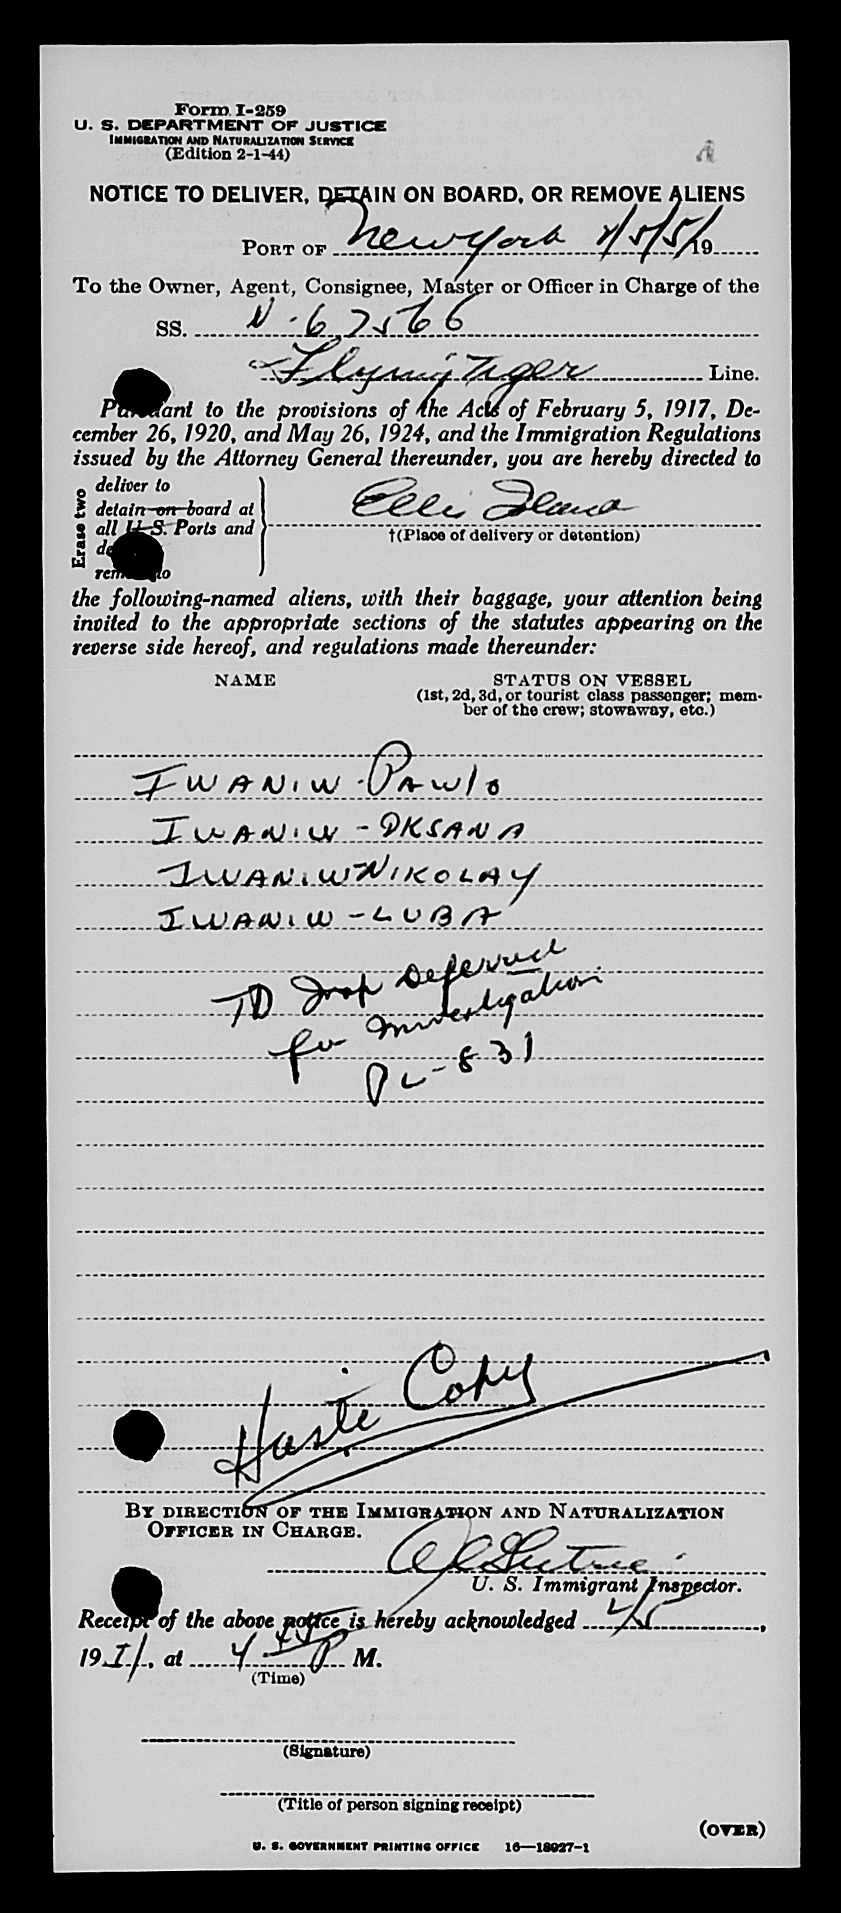 Form I-259
U. S. DEPARTMENT OF JUSTICE
IMMIGRATION AND NATURALIZATION SERVICE
(Edition 2-1-44)
NOTICE TO DELIVER, DETAIN ON BOARD, OR REMOVE ALIENS
PORT OF New York 4/5/51 19
To the Owner, Agent, Consignee, Master or Officer in Charge of the
SS. N-67566
Flying Tiger Line.
Pursuant to the provisions of the Acts of February 5, 1917, De-
cember 26, 1920, and May 26, 1924, and the Immigration Regulations
issued by the Attorney General thereunder, you are hereby directed to
Erase two
deliver to
detain on board at
all U. S. Ports and
to
Ellis Island
†(Place of delivery or detention)
the following-named aliens, with their baggage, your attention being
invited to the appropriate sections of the statutes appearing on the
reverse side hereof, and regulations made thereunder:
NAME STATUS ON VESSEL
(1st, 2d, 3d, or tourist class passenger; mem-
ber of the crew; stowaway, etc.)
IWANIW - PAWlO
IWANIW - OKSANA
IWANIW NIKOLAY
IWANIW - LUBA
TD Insp Deferred
for Investigation
PL-831
Haste Copy
BY DIRECTION OF THE IMMIGRATION AND NATURALIZATION
OFFICER IN CHARGE.
U. S. Immigrant Inspector.
Receipt of the above notice is hereby acknowledged 4/5,
1951, at 4 45 P M.
(Time)
(Signature)
(Title of person signing receipt)
(OVER)
U. S. GOVERNMENT PRINTING OFFICE 16—18927-1